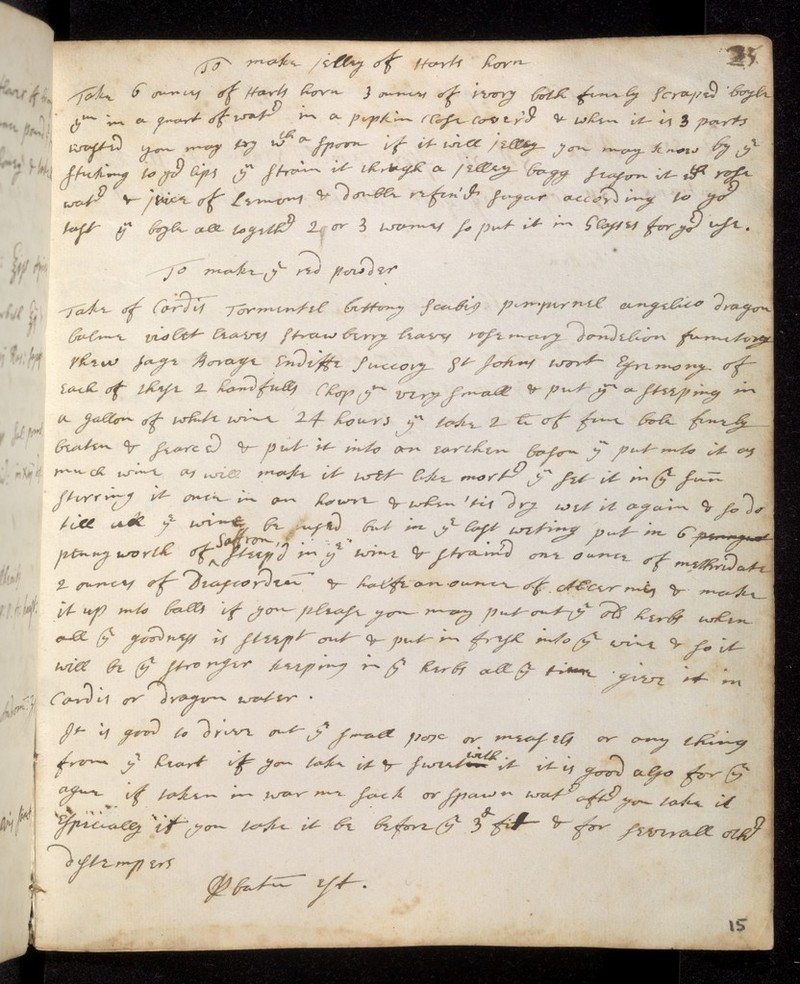 To make jelley of Harts horn
25
Take 6 ounces of Harts horn 3 ounces of ivory both finely scraped boyle
ym in a quart of watr in a pipkin close coverd & when it is 3 parts
wasted you may try wth a spoon if it will jelley you may know by ye
sticking to yor lips yn strain it through a jelley bagg season it wth rose
watr & juice of Lemons & double refin'd sugar according to yor
tast yn boyle all togethr 2 or 3 wames so put it in Glasses for yor use.
To make ye red powder
Take of Cardis Tormentel bettony scabio pimpernel angelico dragon
balme violet leaves strawberry leaves rosemary dandelion fumetory
rhew sage Borage Endiffe Succory St Johns wort Egremony of
each of these 2 handfulls Chop ym very small & put ym a steeping in
a gallon of white wine 24 hours yn take 2 li of fine bole finely
beaten & searced & put it into an earthen bason yn put into it as
much wine as will make it wet like mortr yn set it in ye sun
stirring it once in an howre & when 'tis dry wet it again & so do
till all ye wine be used but in ye last weting put in 6 pennywort
penny worth of saffron steep'd in ye wine & strain'd one ounce of methridate
2 ounces of Diascordeu & halfe an ounce of alcermes & make
it up into balls if you please you may put out ye old herbs when
all ye goodness is steept out & put in fresh into ye wine & so it
will be ye stronger keeping in ye herbs all ye time give it in
Cardis or dragon water.
It is good to drive out ye small pox or measells or any thing
from ye heart if you take it & sweat with it it is good also for ye
ague if taken in warme sack or spawn watr aftr you take it
Especially if you take it be before ye 3d fit & for severall othr
dystempers
Pbatu est.
15